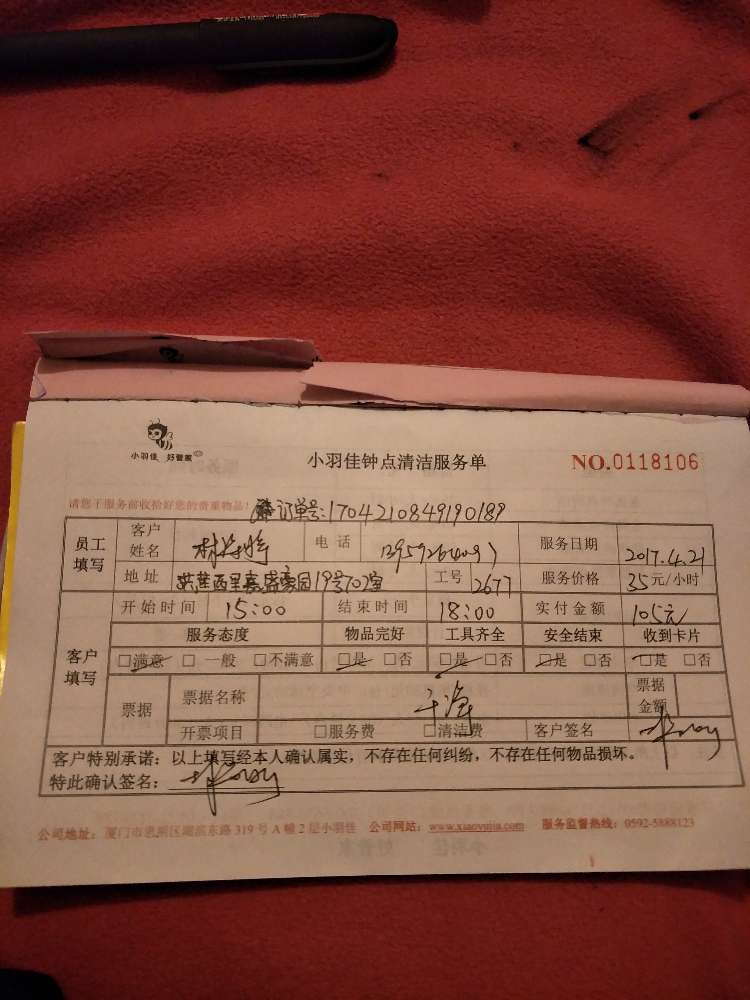 小羽佳 好管家
小羽佳钟点清洁服务单 NO.0118106
请您于服务前收拾好您的贵重物品!
订单号:1704210849190189
员工填写 客户姓名 电话 服务日期 2017.4.21
地址 西里 豪园19号702室 工号 2677 服务价格 35元/小时
客户填写 开始时间 15:00 结束时间 18:00 实付金额 105元
服务态度 物品完好 工具齐全 安全结束 收到卡片
□满意 □一般 □不满意 □是 □否 □是 □否 □是 □否 □是 □否
票据 票据名称 干净 票据金额
开票项目 □服务费 □清洁费 客户签名
客户特别承诺:以上填写经本人确认属实,不存在任何纠纷,不存在任何物品损坏。
特此确认签名:
公司地址:厦门市思明区湖滨东路319号A幢2层小羽佳 公司网站:www.xiaoyujia.com 服务监督热线:0592-5888123